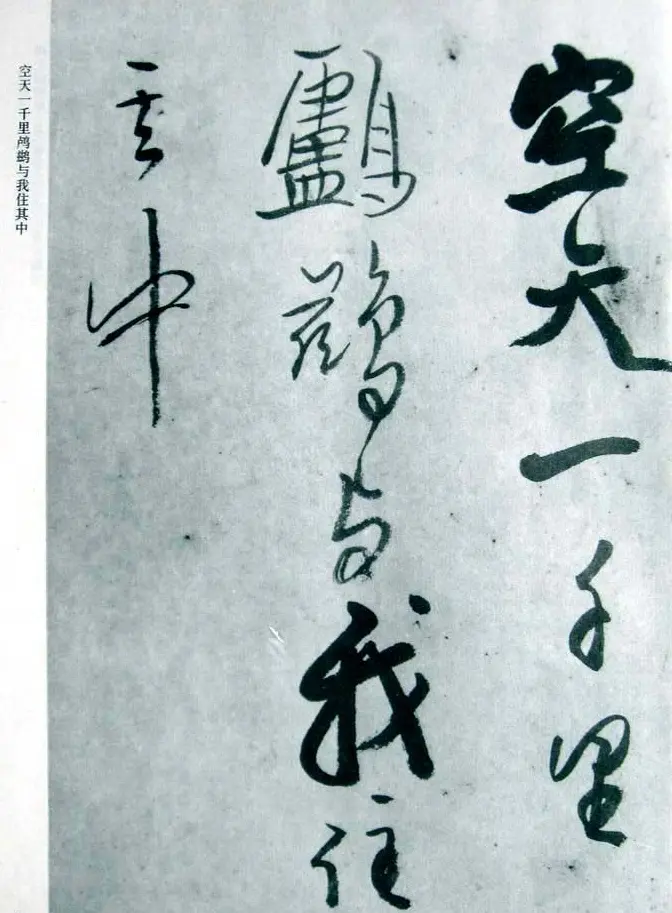 空天一千里
鸕鷀与我住
其中
空天一千里鸬鹚与我住其中